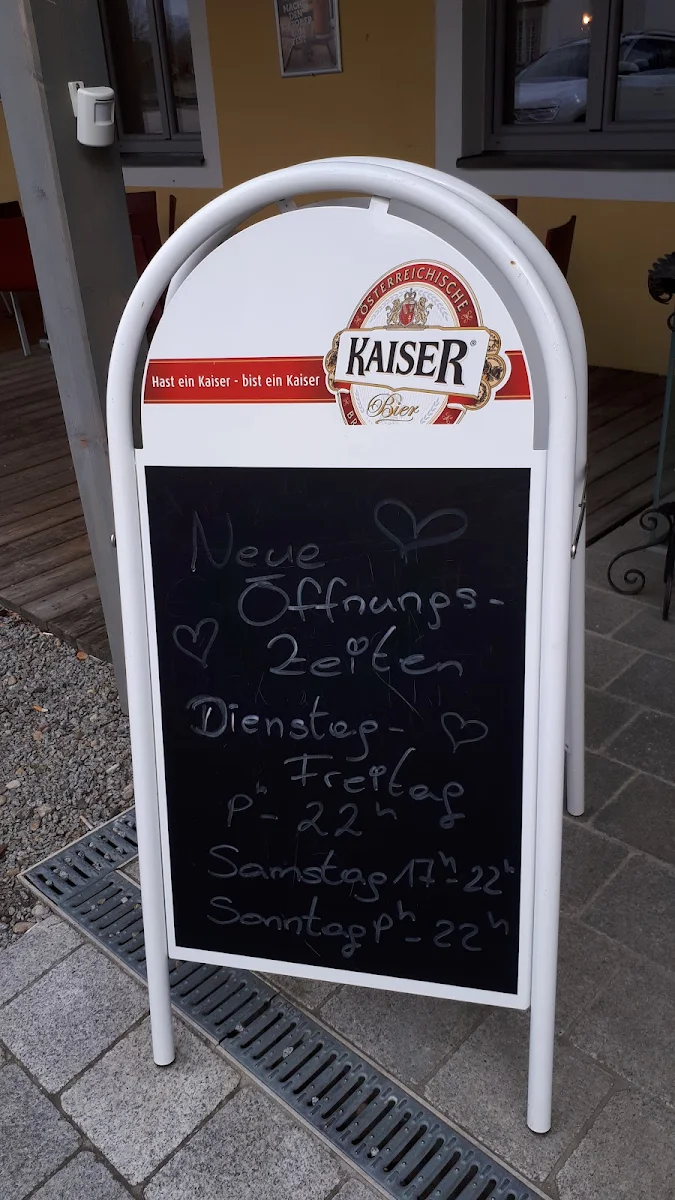 ÖSTERREICHISCHE
KAISER®
Hast ein Kaiser - bist ein Kaiser
Bier
Neue
Öffnungs-
Zeiten
Dienstag-
Freitag
9h - 22h
Samstag 17h - 22h
Sonntag 9h - 22h